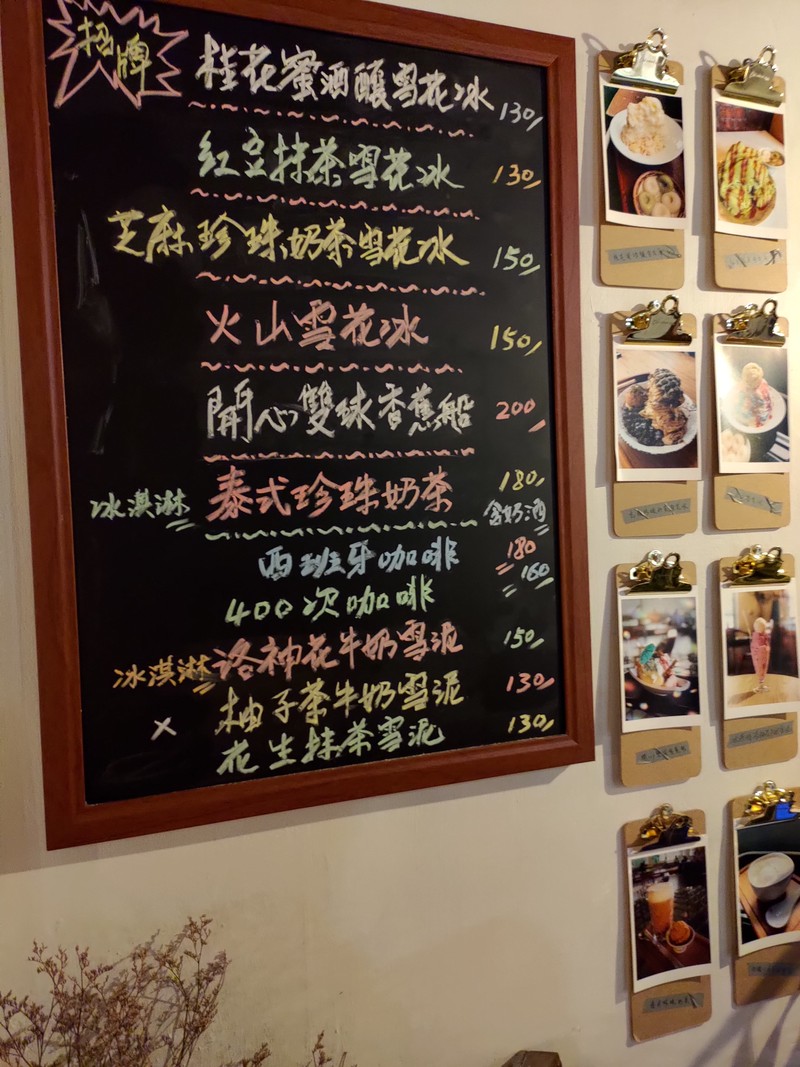 招牌
桂花蜜酒釀雪花冰 130
紅豆抹茶雪花冰 130
芝麻珍珠奶茶雪花冰 150
火山雪花冰 150
開心雙球香蕉船 200
冰淇淋 泰式珍珠奶茶 180
含奶酒
西班牙咖啡 180
160
400次咖啡
冰淇淋 洛神花牛奶雪泥 150
柚子茶牛奶雪泥 130
x 花生抹茶雪泥 130